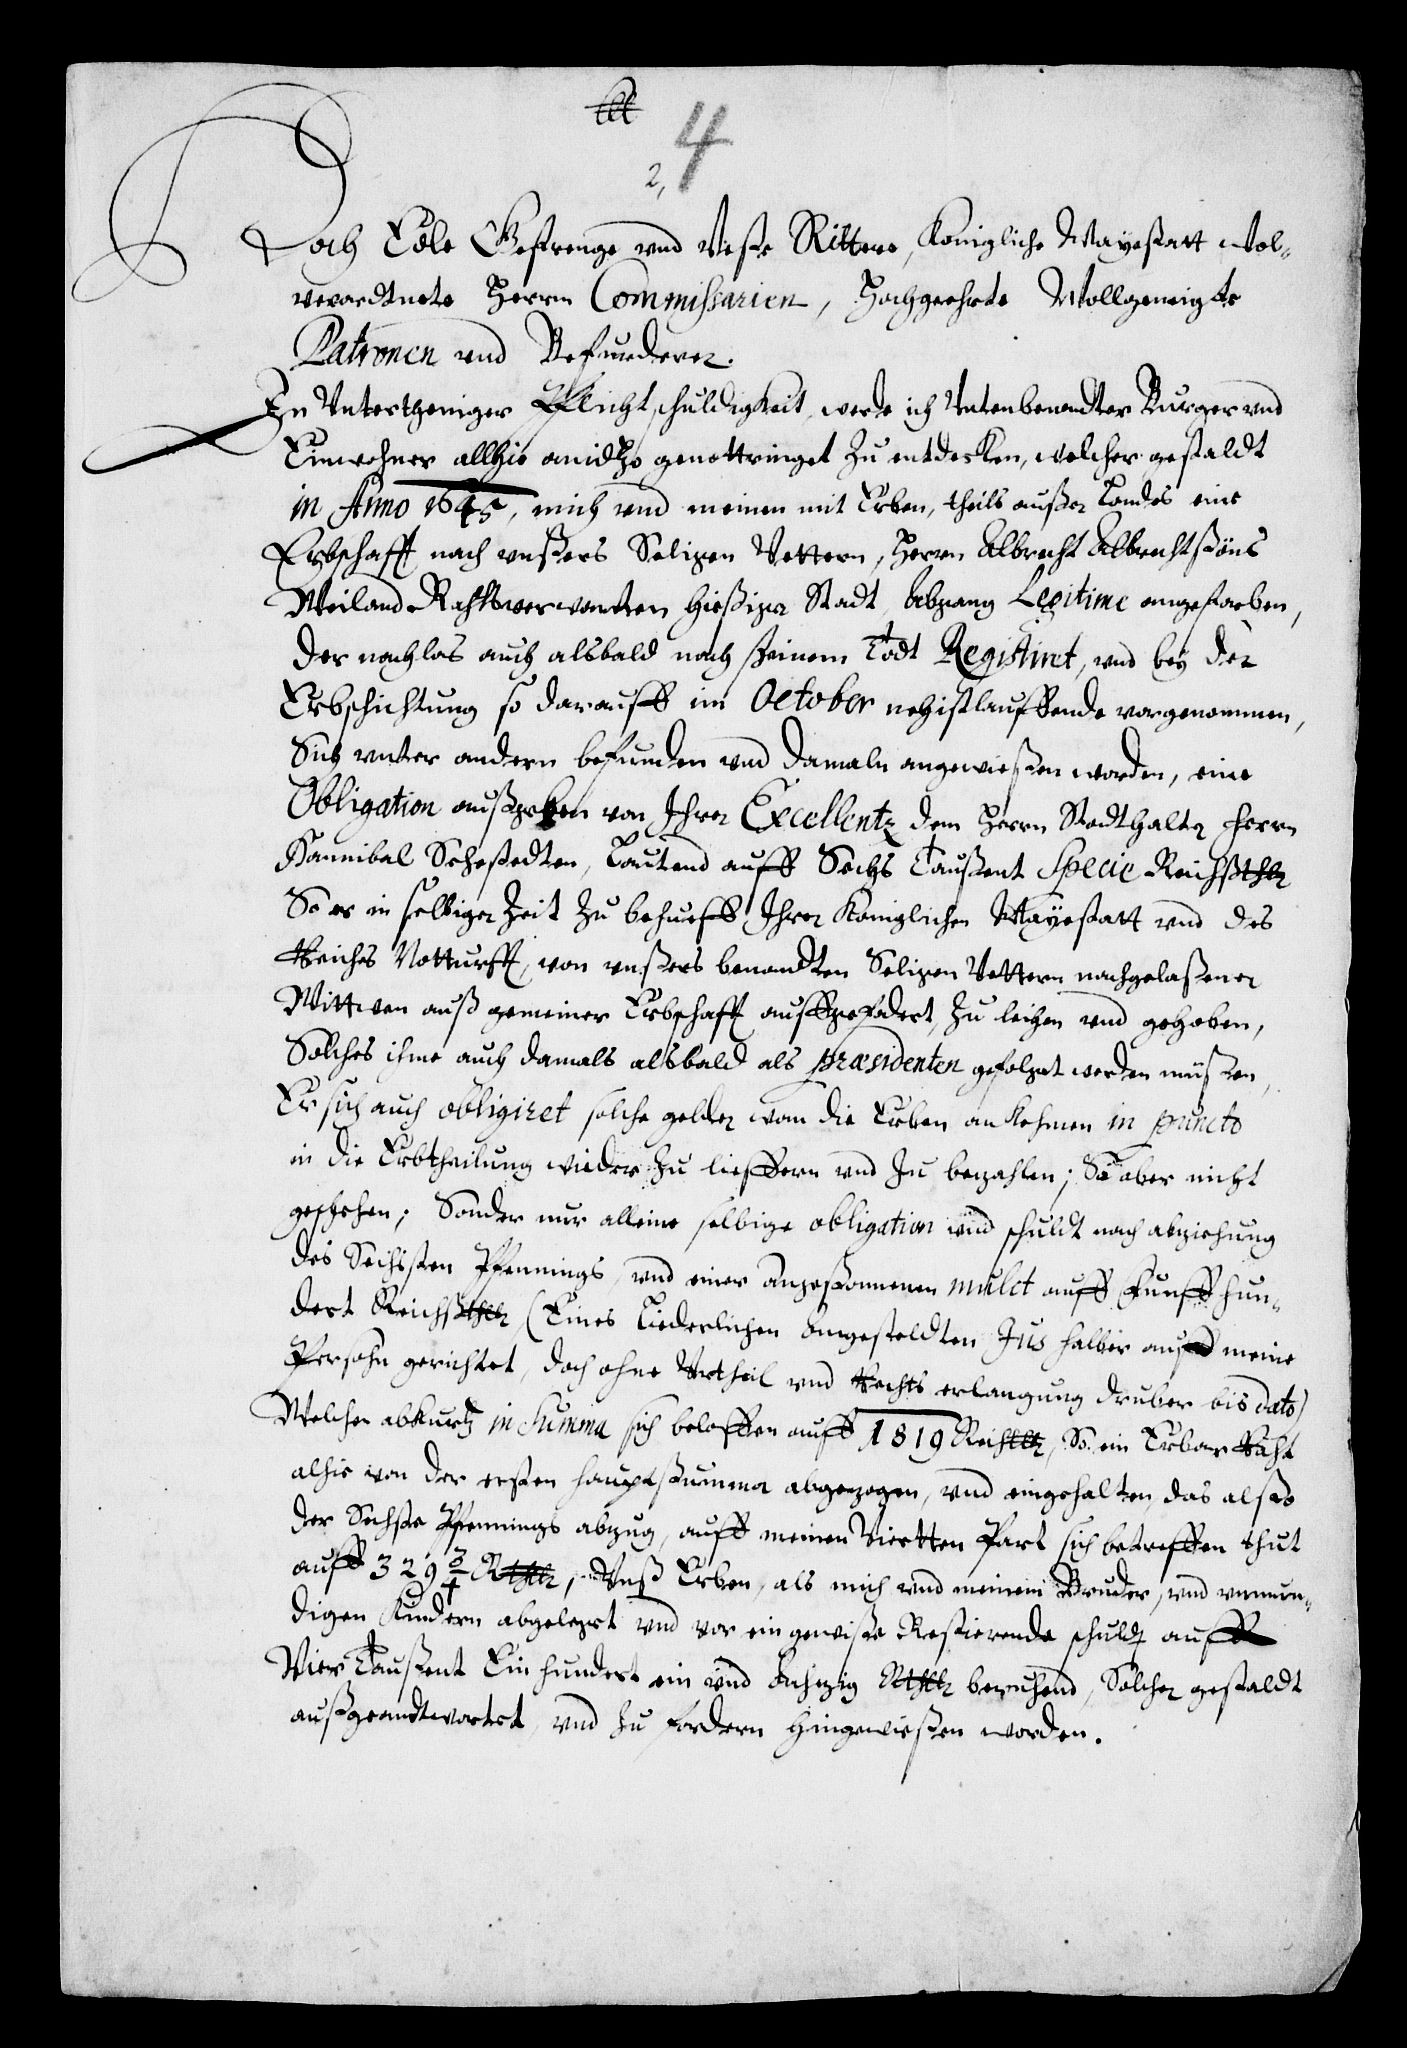 4
2,
Hoch Edle Gestrenge und Veste Rittere, Königliche Mayestatt Wol-
verordtnete Herrn Commissarien, Hochgeehrte Wollgeneigte
Patronen und Befurderer.
In Untertheniger Pflichtschuldigkeit, werde ich Untenbenandter Burger und
Einwohner allhie genottringet zu entdecken, welcher gestaldt
in Anno 1645, mich und meinen mit Erben, theils außer Landes eine
Erbschafft nach unßers Seligen Vettern, Herrn Albrecht Albrechtßöns
Weiland Rahtsverwanten hießiger Stadt, Abgang Legitime angestorben,
Der nachlas auch alsbald nach seinem Todt Registriret, und bey der
Erbschichtung so darauff im October nehistlauffende vorgenommen,
Sich unter andern befunden und damaln angewießen worden, eine
Obligation außgeben von Ihrer Excellentz dem Herrn Stadthalter Herrn
Hannibal Sehestedten, Lautend auff Sechs Taußent Specie Reichßthlr
So er in selbiger Zeit zu behueff Ihrer Königlichen Mayestatt und des
Reiches Notturfft, von unßers benandten Seligen Vettern nachgelaßener
Wittwen auß gemeiner Erbschafft auffgefodert, zu leihen und gehoben,
Solches ihme auch damals alsbald als præsidenten gefolget werden müßen,
Er sich auch obligiret solche gelder wan die Erben ankehmen in puncto
in die Erbtheilung wieder zu lieffern und zu bezahlen; So aber nicht
geschehen; Sonder nur alleine selbige obligation und schuldt nach abziehung
des Sechsten Pfennings, und einer angeßonnenen mulct auff Funffhun-
dert Reichßthlr (Eines Liederlichen angesteldten Jus halber auff meine
Persohn gerichtet, doch ohne Urtheil und Rechts erlangung druber bis dato)
Welcher abkurtz in Summa sich beloffen auff 1819 Reichthlr, So ein Erbar Raht
alhie von der ersten hauptßumma abgezogen, und eingehalten, das alßo
der Sechste Pfennings abzug, auff meinen Viertten Part sich betreffen thut
auff 329 3/4 Rthlr, Unß Erben, als mich und meinem Bruder, und unmun-
digen Kindern abgelegt und vor ein gewiße Restierende schuldt auff
Vier Taußent Ein hundert ein und Achtzig Rthlr beruhend, Solcher gestaldt
außgeandtwortet, und zu fordern hingewießen worden.